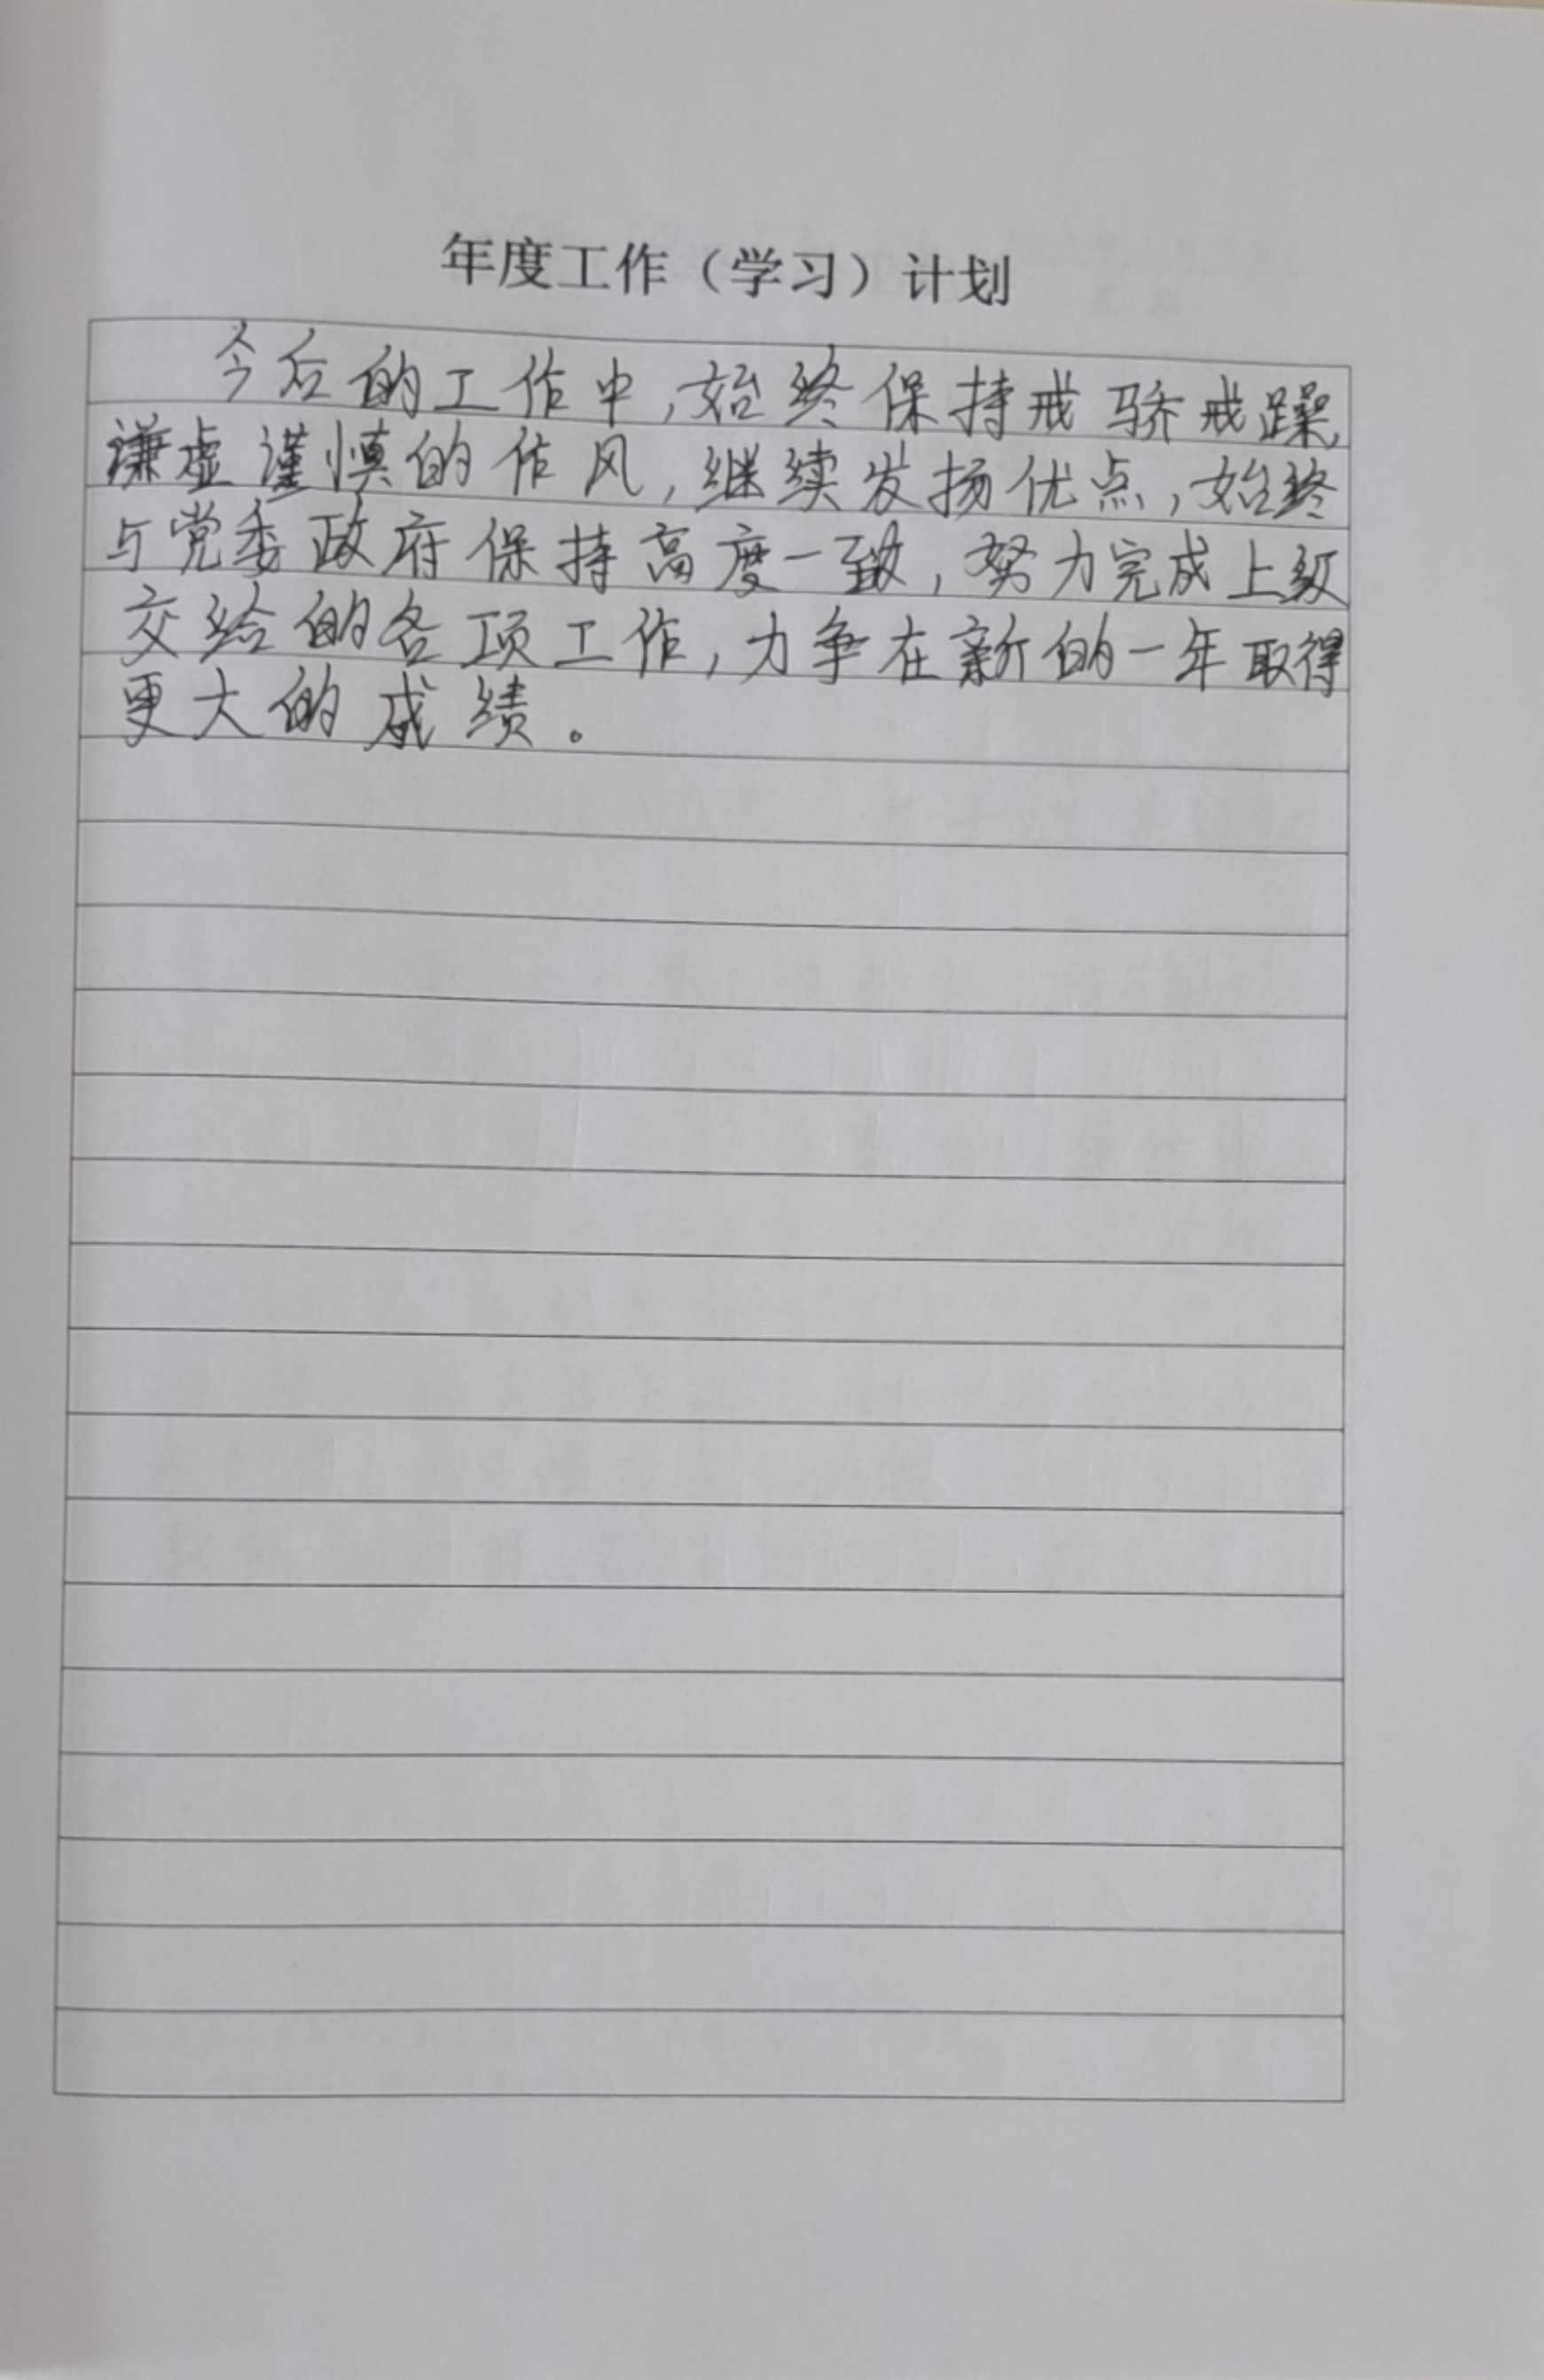 年度工作（学习）计划
今后的工作中,始终保持戒骄戒躁,
谦虚谨慎的作风,继续发扬优点,始终
与党委政府保持高度一致,努力完成上级
交给的各项工作,力争在新的一年取得
更大的成绩。